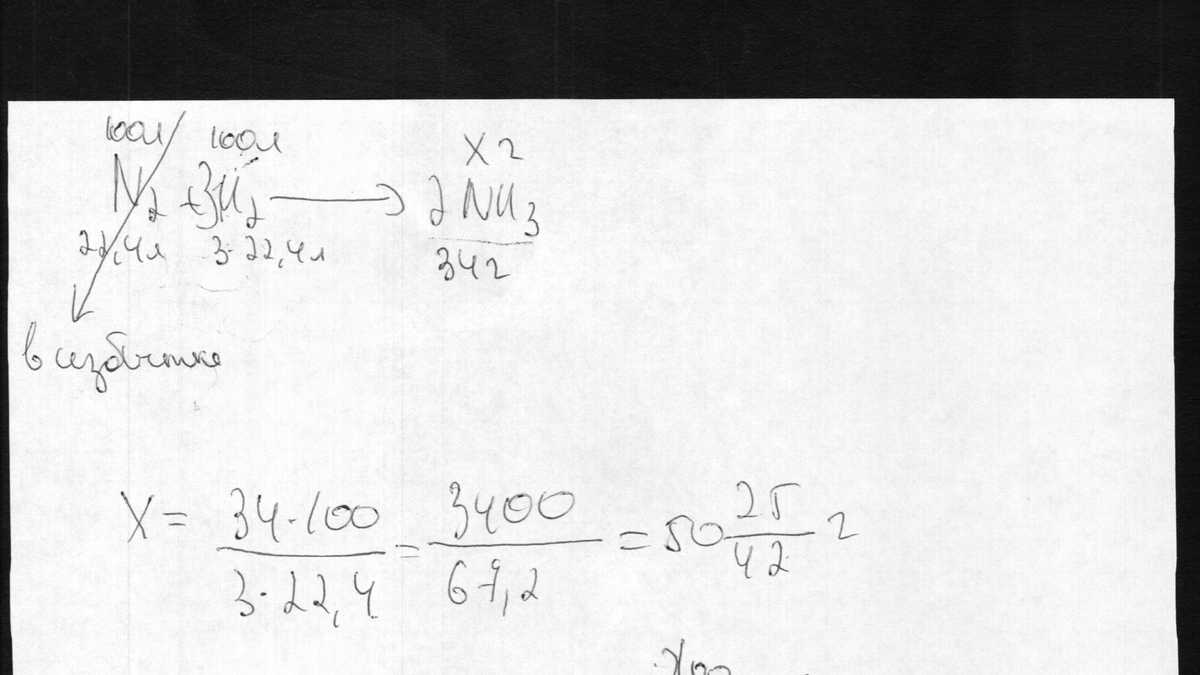 100л 100л X г
N₂ + 3H₂ → 2NH₃
22,4л 3·22,4л 34г
в избытке
X = 34·100 / 3·22,4 = 3400 / 67,2 = 50 25/42 г